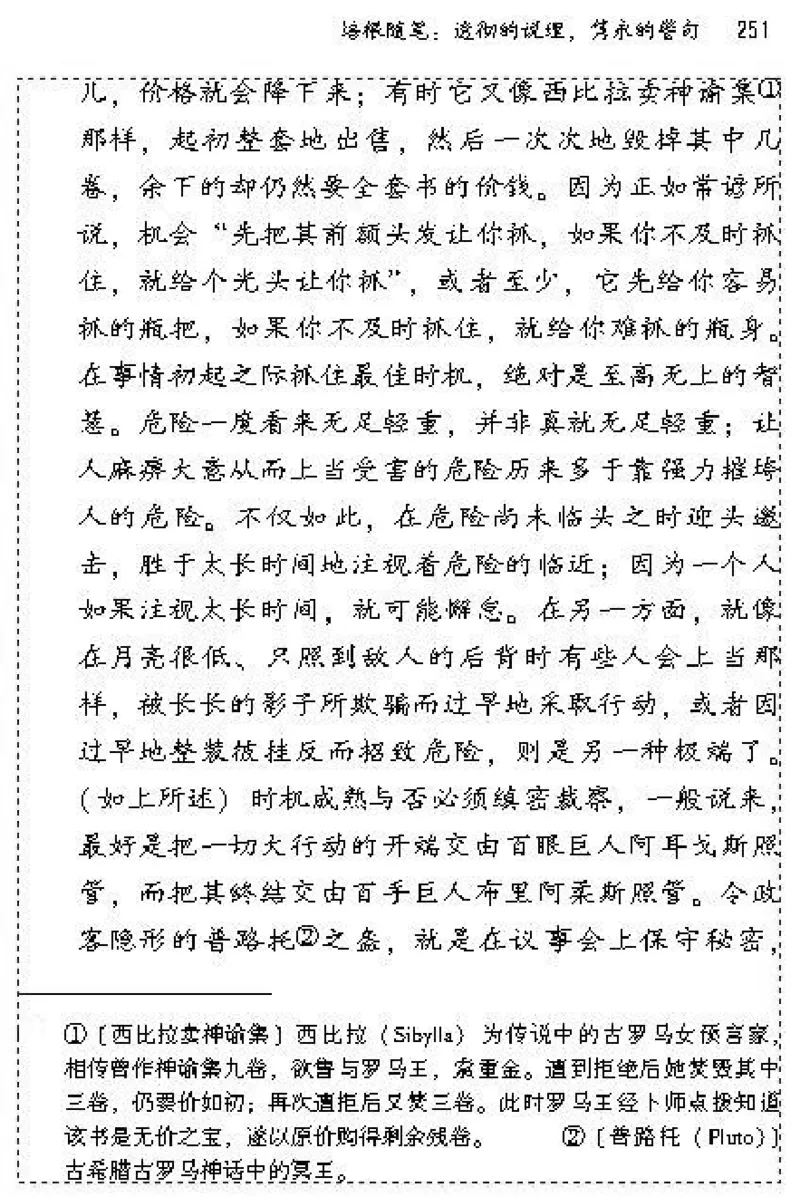 培根随笔：透彻的说理，隽永的警句 251
儿，价格就会降下来；有时它又像西比拉卖神谕集①
那样，起初整套地出售，然后一次次地毁掉其中几
卷，余下的却仍然要全套书的价钱。因为正如常谚所
说，机会“先把其前额头发让你抓，如果你不及时抓
住，就给个光头让你抓”，或者至少，它先给你容易
抓的瓶把，如果你不及时抓住，就给你难抓的瓶身。
在事情初起之际抓住最佳时机，绝对是至高无上的智
慧。危险一度看来无足轻重，并非真就无足轻重；让
人麻痹大意从而上当受害的危险历来多于靠强力摧垮
人的危险。不仅如此，在危险尚未临头之时迎头邀
击，胜于太长时间地注视着危险的临近；因为一个人
如果注视太长时间，就可能懈怠。在另一方面，就像
在月亮很低、只照到敌人的后背时有些人会上当那
样，被长长的影子所欺骗而过早地采取行动，或者因
过早地整装披挂反而招致危险，则是另一种极端了。
(如上所述) 时机成熟与否必须缜密裁察，一般说来，
最好是把一切大行动的开端交由百眼巨人阿耳戈斯照
管，而把其终结交由百手巨人布里阿柔斯照管。令政
客隐形的普路托②之盔，就是在议事会上保守秘密，
①［西比拉卖神谕集］西比拉（Sibylla）为传说中的古罗马女预言家，
相传曾作神谕集九卷，欲售与罗马王，索重金。遭到拒绝后她焚毁其中
三卷，仍要价如初；再次遭拒后又焚三卷。此时罗马王经卜师点拨知道
该书是无价之宝，遂以原价购得剩余残卷。 ②［普路托（Pluto）］
古希腊古罗马神话中的冥王。